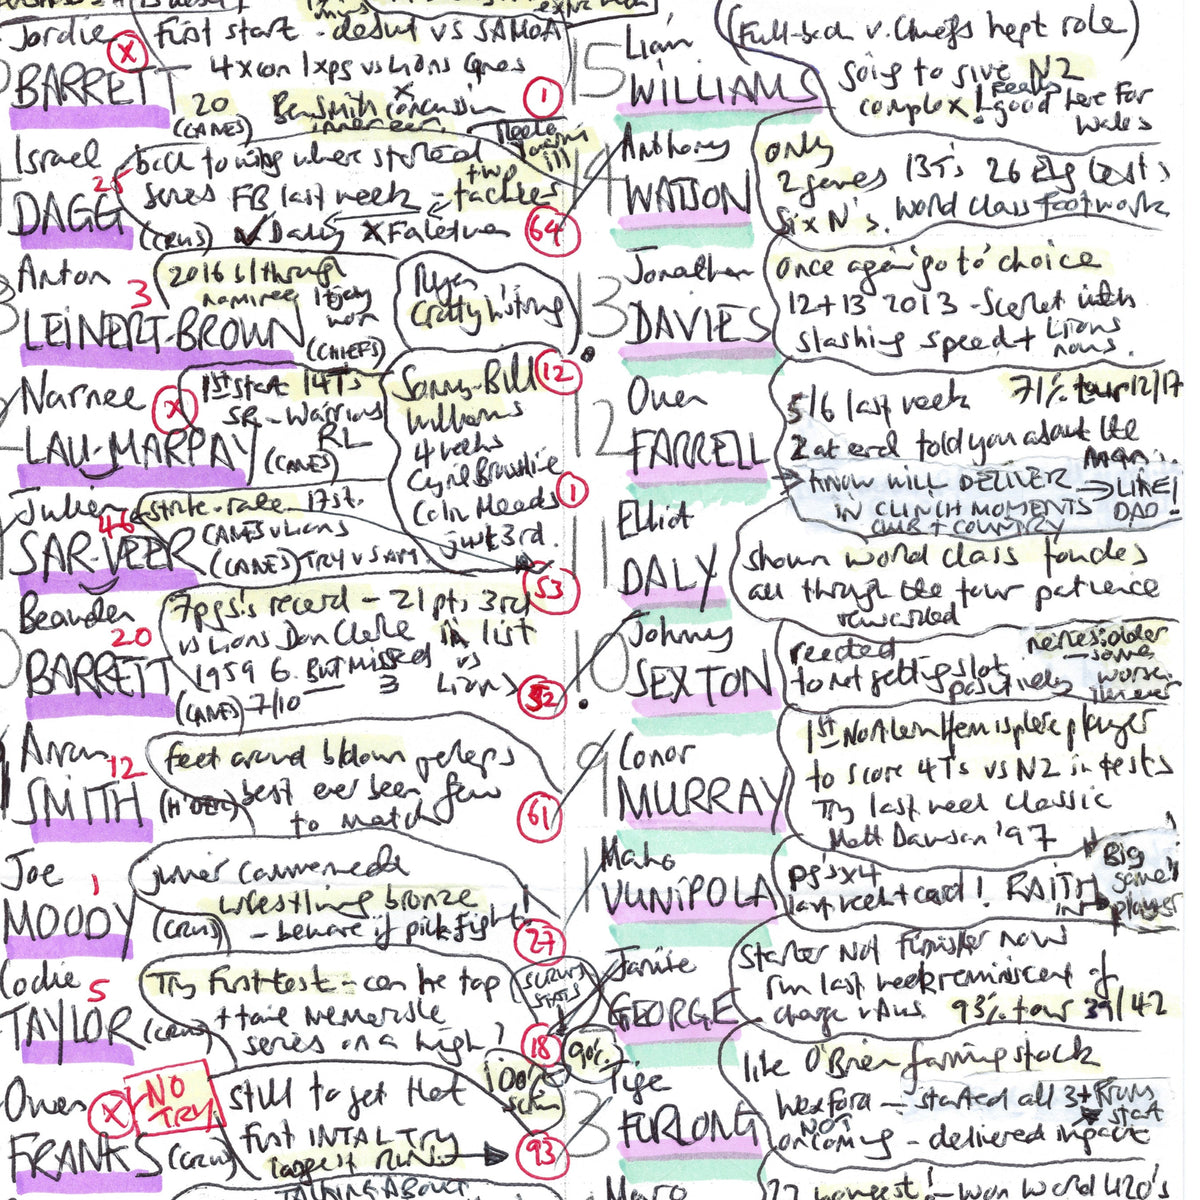 Jordie
First start - debut vs SAMOA
X
BARRETT
4xcon 1xpg vs Lions Canes
20
(CANES)
Ben Smith concussion
1
Israel
back to wing where started
DAGG
25
series FB last week - two
tackles
(CRUS)
✓ Daly X Faletau
64
Anton
2016 b/through
nominee
3
LEINERT-BROWN
(CHIEFS)
Ryan
Crotty h'string
12
Narnee
X
1st start 14Ts
SR - Warriors
RL
LAU-MARPAY
(CANES)
Sonny-Bill
Williams
4 weeks
Cyril Brownlie
Colin Meads
just 3rd.
1
Julien
46
strike-rate 17st.
CANES v Lions
SAR-VEER
(CANES) TRY v SAM.
53
Beauden
20
BARRETT
7pgs's record - 21 pts 3rd
vs Lions Don Clarke in list
1959 6. But missed vs
3 Lions
(CANES) 7/10
52
Aron
12
SMITH
feet around b/down perhaps
best ever been few
to match
61
Joe
1
MOODY
(CRUS)
junior Commonwealth
wrestling bronze
- beware if pick fight!
27
Codie
5
TAYLOR
(CRUS)
Try first test - can he top
+ tail memorable
series on a high?
SCRUMS
STATS
18
90%
100%
scrum
Owen
X
NO
TRY
FRANKS
(CRUS)
still to get that
first INTAL TRY
largest RUN.
93
TALKING ABOUT
15
Liam
WILLIAMS
(Full-back v. Chiefs kept role)
going to give NZ
complex! Really
good here for
Wales
14
Anthony
WATSON
only
2 games 13T's 26 Eng tests
Six N's. World class footwork
13
Jonathan
DAVIES
Once again 'go to' choice
12+13 2013 - Scarlet with
slashing speed + Lions
nous.
12
Owen
FARRELL
5/6 last week 71% tour 12/17
2 at end told you about the
man.
KNOW WILL DELIVER → LIKE
IN CLINCH MOMENTS DAD!
CLUB + COUNTRY
11
Elliot
DALY
shown world class touches
all through the tour patience
rewarded
10
Johnny
SEXTON
reacted
to not getting slot
positively
9
Conor
MURRAY
1st Northern Hemisphere player
to score 4Ts vs NZ in tests
Try last week classic
Matt Dawson '97
1
Mako
VUNIPOLA
pg's x4
last week + card! FAITH
IN
Big
game
player
Jamie
GEORGE
Starter Not Finisher now
run last week reminiscent of
charge v Aus. 93% tour 39/42
3
Tige
FURLONG
like O'Brien farming stock
Wexford - started all 3 +
start
NOT
oncoming - delivered impact
Maro
22 - won world U20's